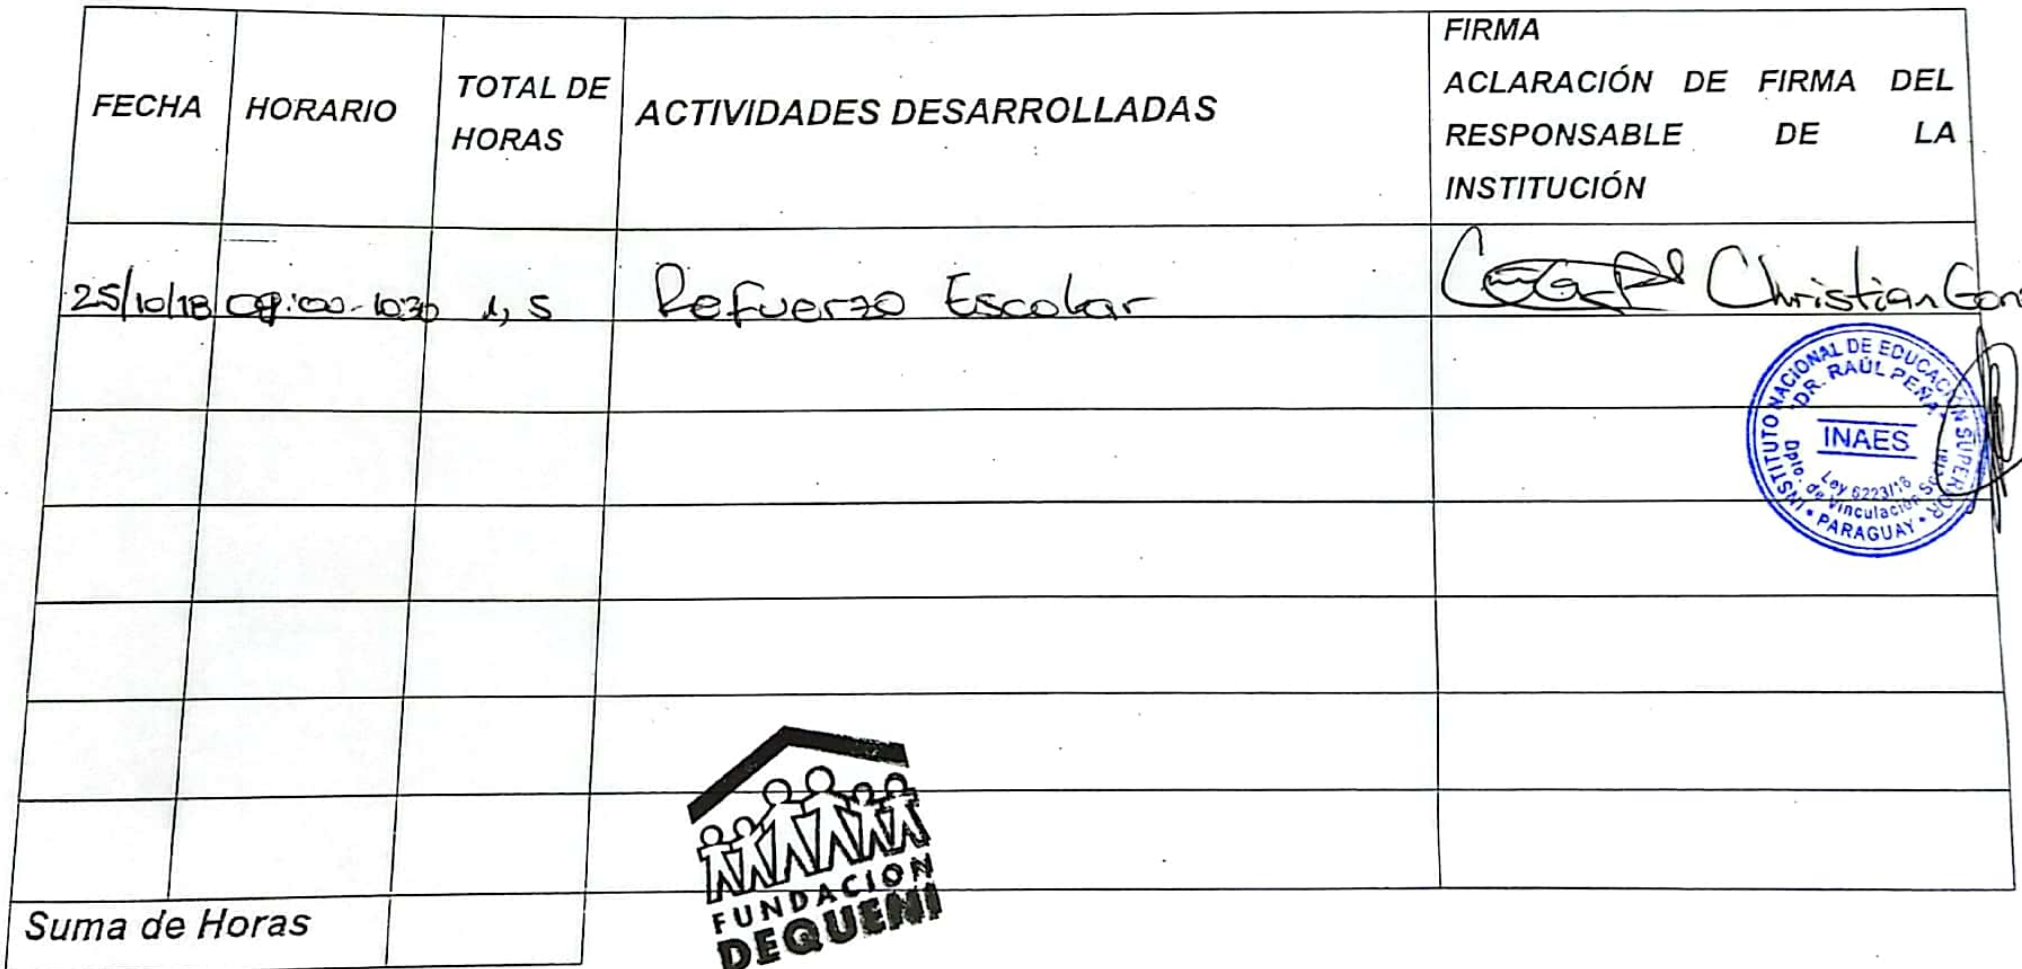 FECHA
HORARIO
TOTAL DE
HORAS
ACTIVIDADES DESARROLLADAS
FIRMA
ACLARACIÓN DE FIRMA DEL
RESPONSABLE DE LA
INSTITUCIÓN
25/10/18 09:00-10:30 1,5 Refuerzo Escolar Christian Gon
INSTITUTO NACIONAL DE EDUCACIÓN SUPERIOR
"DR. RAÚL PEÑA"
INAES
Ley 6223/18
Dpto. de Vinculación Social
• PARAGUAY •
Suma de Horas
FUNDACION
DEQUENI